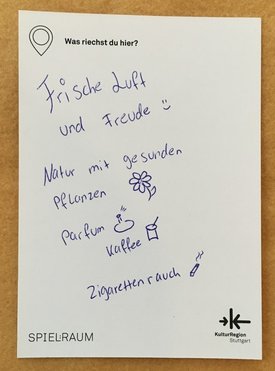 Was riechst du hier?
Frische Luft
und Freude
Natur mit gesunden
Pflanzen
Parfum
Kaffee
Zigarettenrauch
SPIEL:RAUM
KulturRegion
Stuttgart